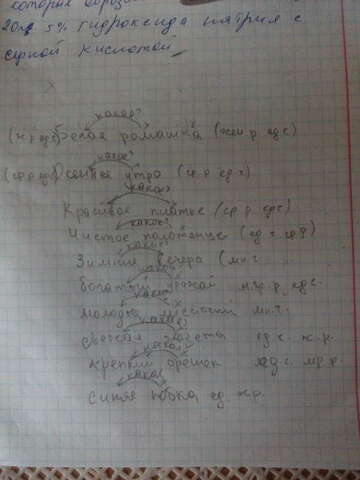 которая образо
20г 5% гидроксида натрия с
серной кислотой
какая?
(ж р ед) Белая ромашка (жен р. ед с)
какое?
(ср р ед) Осеннее утро (ср р ед ч)
какое?
Красивое платье (ср р. ед ч)
какое?
Чистое полотенце (ед ч ср р)
какие?
Зимние вечера (мн.ч.
какой?
богатый урожай м.р. р. ед с.
какие?
молодые мн.ч.
какая?
свежая газета ед с. ж.р.
какой?
крепкий орешок ед. с. м р. р.
какая?
синяя юбка ед. ж.р.